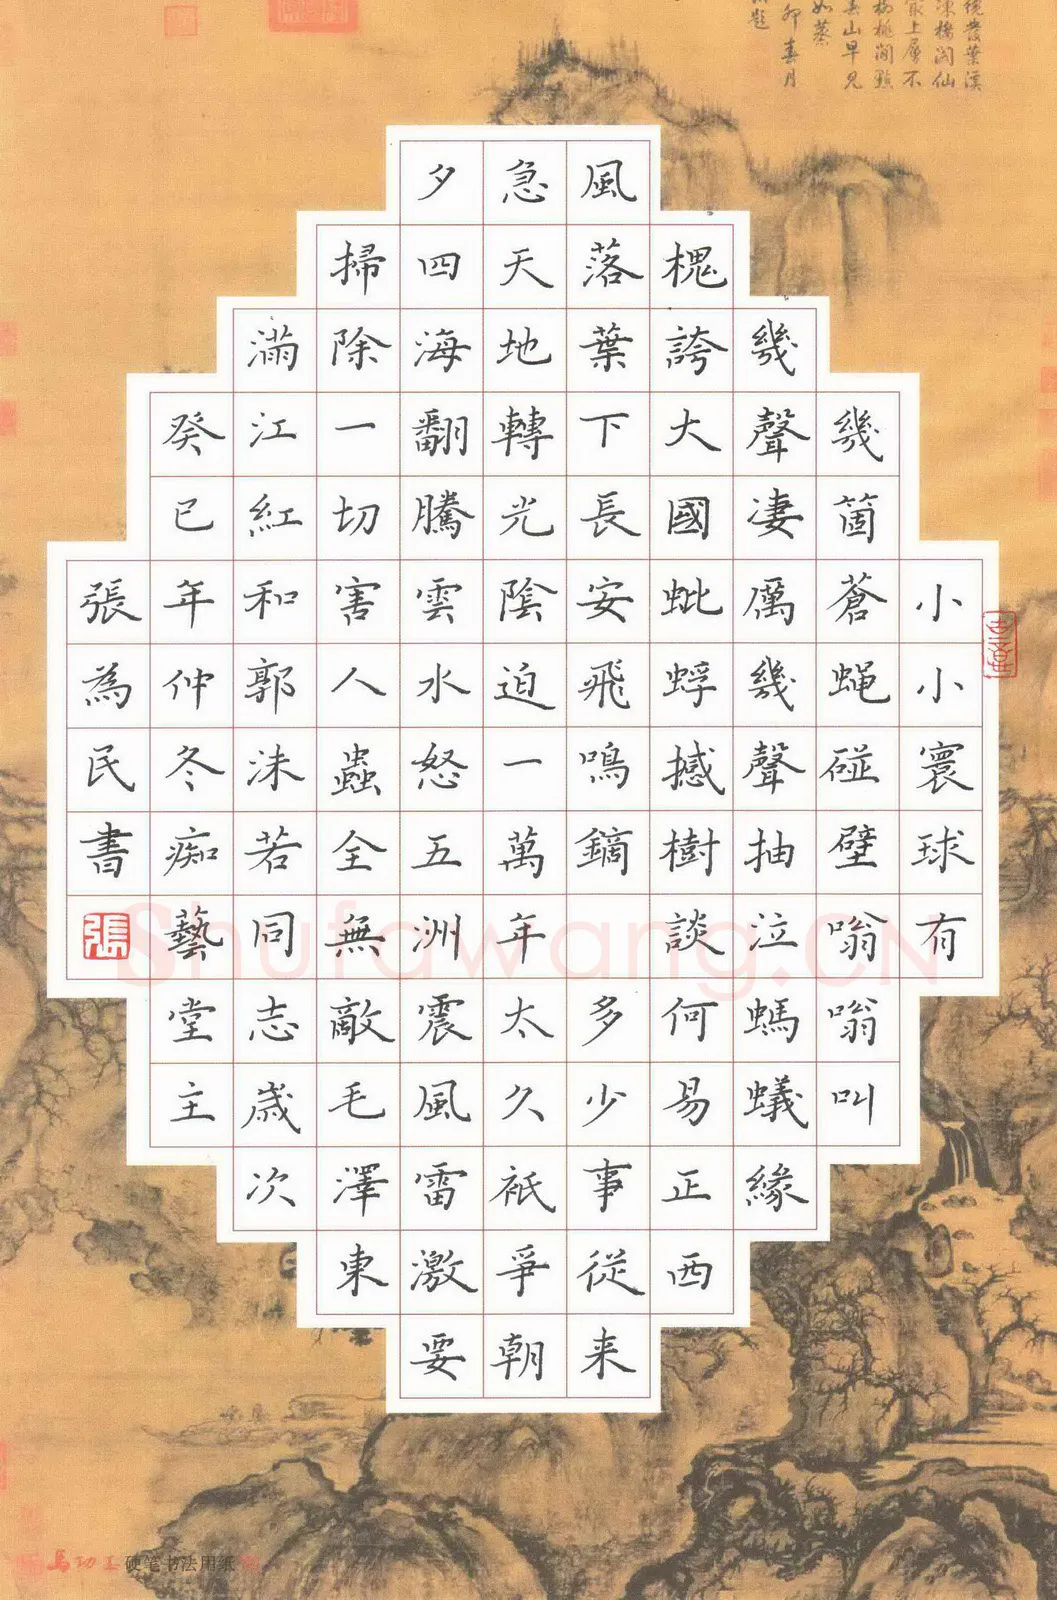 發葉溪
凍樓閣仙
上層不
桃閒點
山早見
如蒸
卯春月
題
小小寰球有
幾箇蒼蝇碰壁嗡嗡叫
幾聲凄厲幾聲抽泣螞蟻緣
槐誇大國蚍蜉撼樹談何易正西
風落葉下長安飛鳴鏑 多少事從来
急天地轉光陰迫一萬年太久衹爭朝
夕四海翻騰雲水怒五洲震風雷激要
掃除一切害人蟲全無敵毛澤東
滿江紅和郭沫若同志歲次
癸巳年仲冬痴藝堂主
張為民書
張
Shufawang.CN
硬笔书法用纸